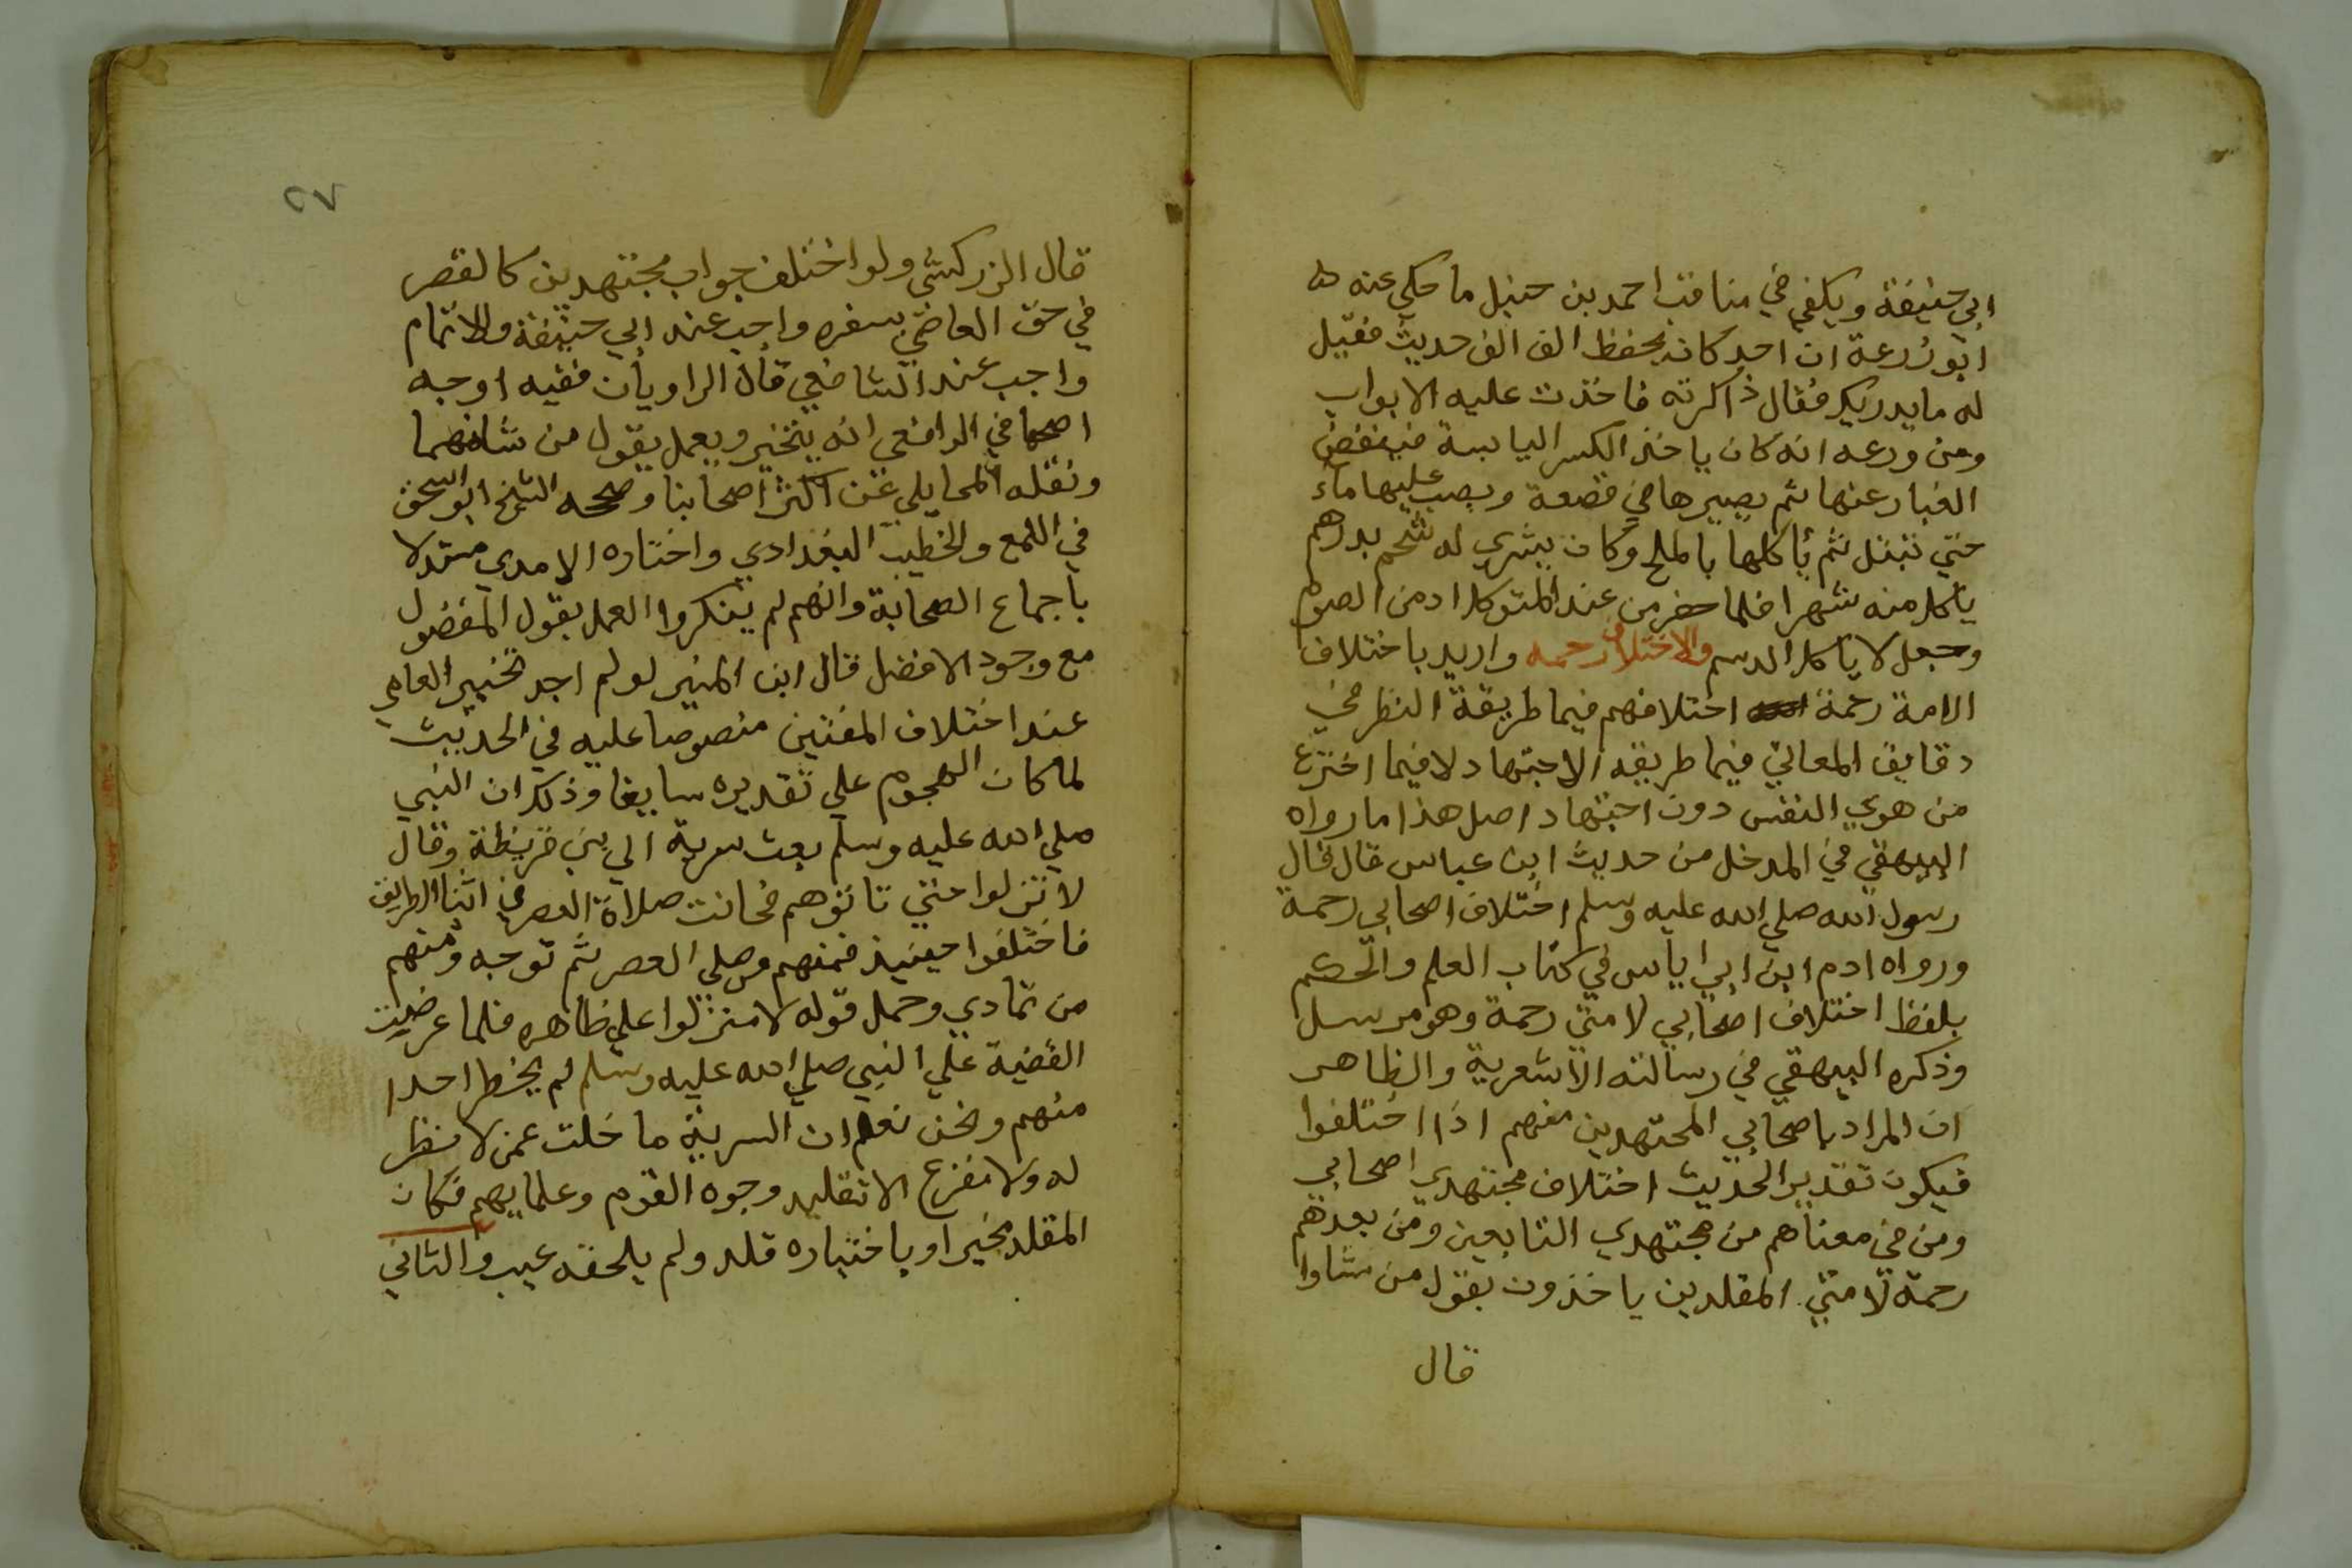 ابي حنيفة ويكفي في مناقب احمد بن حنبل ما حكي عنه
ابو زرعة ان احمد كان يحفظ الف الف حديث فقيل
له ما يدريك فقال ذاكرته فاخذت عليه الابواب
ومن ورعه انه كان ياخذ الكسر اليابسة فينفض
الغبار عنها ثم يصيرها في قصعة ويصب عليها ماء
حتي تبتل ثم ياكلها بالملح وكان يشري له شحم بدرهم
ياكل منه شهرا فلما حضر من عند المتوكل ادمن الصوم
وجعل لا ياكل الدسم والاختلاف رحمه واريد باختلاف
الامة رحمة اختلافهم فيما طريقة النظر في
دقايق المعاني فيما طريقه الاجتهاد لا فيما اخترع
من هوي النفس دون اجتهاد اصل هذا ما رواه
البيهقي في المدخل من حديث ابن عباس قال قال
رسول الله صلي الله عليه وسلم اختلاف اصحابي رحمة
ورواه ادم ابن ابي اياس في كتاب العلم والحكم
بلفظ اختلاف اصحابي لامتي رحمة وهو مرسل
وذكره البيهقي في رسالته الاشعرية والظاهر
ان المراد باصحابي المجتهدين منهم اذا اختلفوا
فيكون تقدير الحديث اختلاف مجتهدي اصحابي
ومن في معناهم من مجتهدي التابعين ومن بعدهم
رحمة لامتي المقلدين ياخذون بقول من شاوا
قال
٢٧
قال الزركشي ولو اختلف جواب مجتهدين كالقصر
في حق العاصي بسفره واجب عند ابي حنيفة والاتمام
واجب عند الشافعي قال الراويان ففيه اوجه
اصحها في الرافعي انه يتخير ويعمل بقول من شا منهما
ونقله المحاملي عن اكثر اصحابنا وصححه الشيخ ابو اسحق
في اللمع والخطيب البغدادي واختاره الامدي مستدلا
باجماع الصحابة وانهم لم ينكروا العمل بقول المفضول
مع وجود الافضل قال ابن المنير لو لم اجد تخيير العامي
عند اختلاف المفتين منصوصا عليه في الحديث
لما كان الهجوم علي تقديره سايغا وذلك ان النبي
صلي الله عليه وسلم بعث سرية الي بني قريظة وقال
لا تنزلوا حتي تاتوهم فحانت صلاة العصر في اثنا الطريق
فاختلفوا حينيذ فمنهم من صلي العصر ثم توجه ومنهم
من تمادي وحمل قوله لا تنزلوا علي ظاهره فلما عرضت
القضية علي النبي صلي الله عليه وسلم لم يخط احدا
منهم ونحن نعلم ان السرية ما خلت عمن لا نظر
له ولا مفزع الا تقليد وجوه القوم وعلمايهم فكان
المقلد مخيرا وباختياره قلد ولم يلحقه عيب والثاني